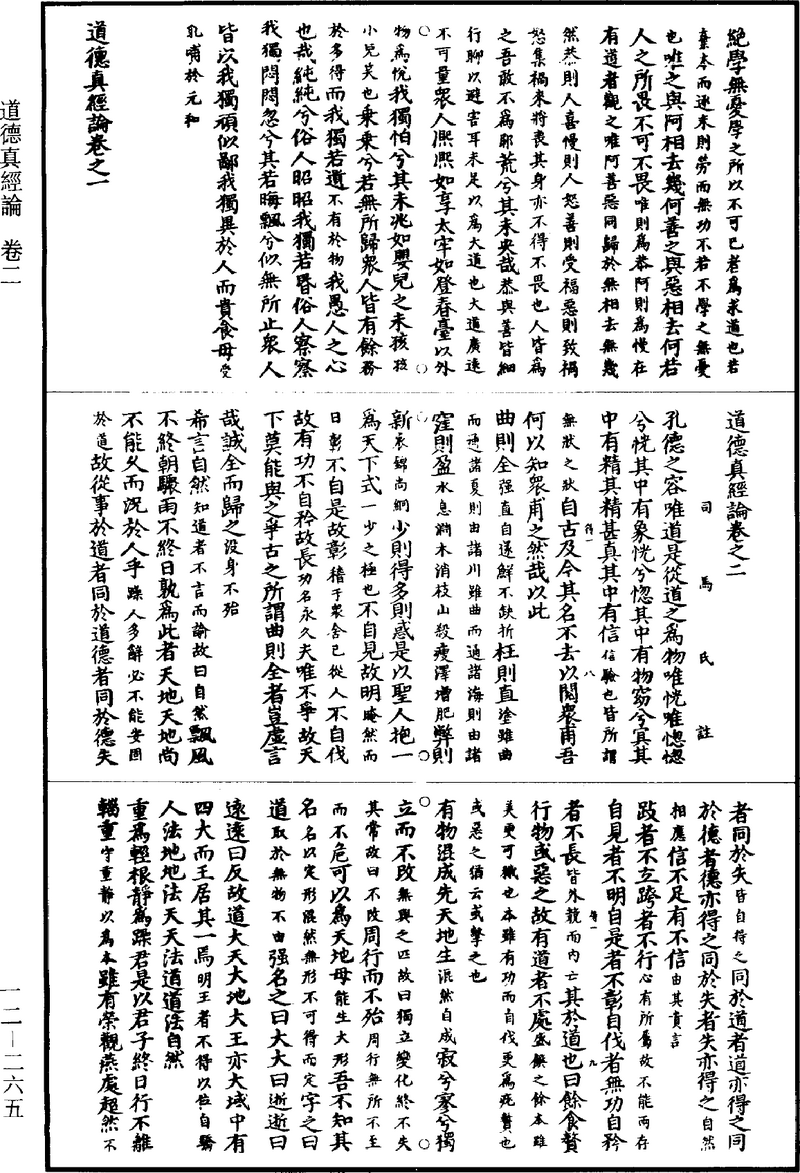 絕學無憂學之所以不可已者為求道也若
棄本而逐末則勞而無功不若不學之無憂
也唯之與阿相去幾何善之與惡相去何若
人之所畏不可不畏唯則為恭阿則為慢在
有道者觀之唯阿善惡同歸於無相去無幾
然恭則人喜慢則人怨善則受福惡則致禍
怨集禍來將喪其身亦不得不畏也人皆為
之吾敢不為耶荒兮其未央哉恭與善皆細
行聊以避害耳未足以為大道也大道廣遠
不可量眾人熙熙如享太牢如登春臺以外
物為悅我獨怕兮其未兆如嬰兒之未孩孩
小兒笑也乘乘兮若無所歸眾人皆有餘務
於多得而我獨若遺不有於物我愚人之心
也哉純純兮俗人昭昭我獨若昏俗人察察
我獨悶悶忽兮其若晦飄兮似無所止眾人
皆以我獨頑似鄙我獨異於人而貴食母受
乳哺於元和
道德真經論卷之一
道德真經論卷之二
司馬氏註
孔德之容唯道是從道之為物唯恍唯惚惚
兮恍其中有象恍兮惚其中有物窈兮冥其
中有精其精甚真其中有信信驗也皆所謂
無狀之狀自古及今其名不去以閱眾甫吾
何以知眾甫之然哉以此
曲則全强直自遂鮮不缺折枉則直塗雖曲
而通諸夏則由諸川雖曲而通諸海則由諸
窪則盈水息淵木消枝山殺瘦澤增肥弊則
新衣錦尚絅少則得多則惑是以聖人抱一
為天下式一少之極也不自見故明晻然而
日彰不自是故彰稽于眾舍己從人不自伐
故有功不自矜故長功名永久夫唯不爭故天
下莫能與之爭古之所謂曲則全者豈虛言
哉誠全而歸之沒身不殆
希言自然知道者不言而諭故曰自然飄風
不終朝驟雨不終日孰為此者天地天地尚
不能久而況於人乎躁人多解必不能安固
於道故從事於道者同於道德者同於德失
者同於失皆自得之同於道者道亦得之同
於德者德亦得之同於失者失亦得之自然
相應信不足有不信由其貴言
跂者不立跨者不行心有所屬故不能兩存
自見者不明自是者不彰自伐者無功自矜
者不長皆外競而內亡其於道也曰餘食贅
行物或惡之故有道者不處盛饌之餘本雖
美更可薉也本雖有功而自伐更為疣贅也
或惡之猶云或擊之也
有物混成先天地生混然自成寂兮寥兮獨
立而不改無與之匹故曰獨立變化終不失
其常故曰不改周行而不殆周行無所不至
而不危可以為天地母能生大形吾不知其
名名以定形混然無形不可得而定字之曰
道取於無物不由强名之曰大大曰逝逝曰
遠遠曰反故道大天大地大王亦大域中有
四大而王居其一焉明王者不得以位自驕
人法地地法天天法道道法自然
重為輕根靜為躁君是以君子終日行不離
輜重守重靜以為本雖有榮觀燕處超然不
道德真經論 卷二
一二—二六五